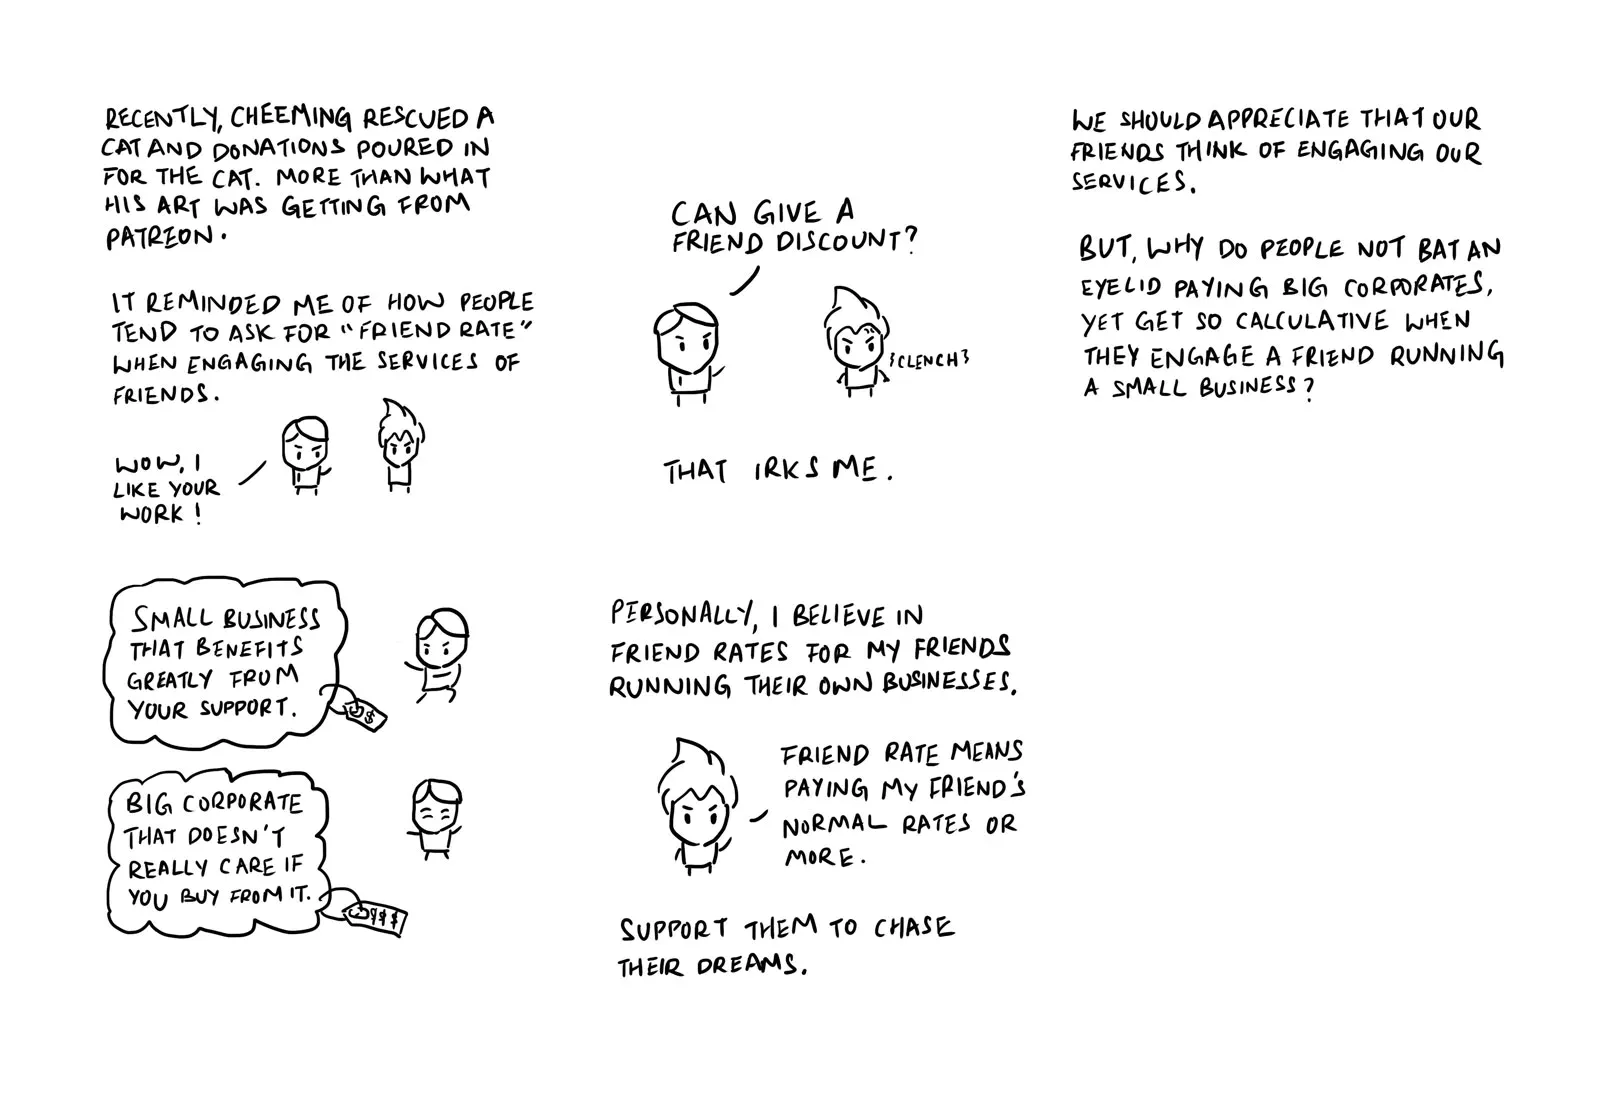 RECENTLY, CHEEMING RESCUED A
CAT AND DONATIONS POURED IN
FOR THE CAT. MORE THAN WHAT
HIS ART WAS GETTING FROM
PATREON.
IT REMINDED ME OF HOW PEOPLE
TEND TO ASK FOR "FRIEND RATE"
WHEN ENGAGING THE SERVICES OF
FRIENDS.
WOW, I
LIKE YOUR
WORK!
CAN GIVE A
FRIEND DISCOUNT?
CLENCH
THAT IRKS ME.
WE SHOULD APPRECIATE THAT OUR
FRIENDS THINK OF ENGAGING OUR
SERVICES.
BUT, WHY DO PEOPLE NOT BAT AN
EYELID PAYING BIG CORPORATES,
YET GET SO CALCULATIVE WHEN
THEY ENGAGE A FRIEND RUNNING
A SMALL BUSINESS?
SMALL BUSINESS
THAT BENEFITS
GREATLY FROM
YOUR SUPPORT.
$
BIG CORPORATE
THAT DOESN'T
REALLY CARE IF
YOU BUY FROM IT.
$$$
PERSONALLY, I BELIEVE IN
FRIEND RATES FOR MY FRIENDS
RUNNING THEIR OWN BUSINESSES.
FRIEND RATE MEANS
PAYING MY FRIEND'S
NORMAL RATES OR
MORE.
SUPPORT THEM TO CHASE
THEIR DREAMS.